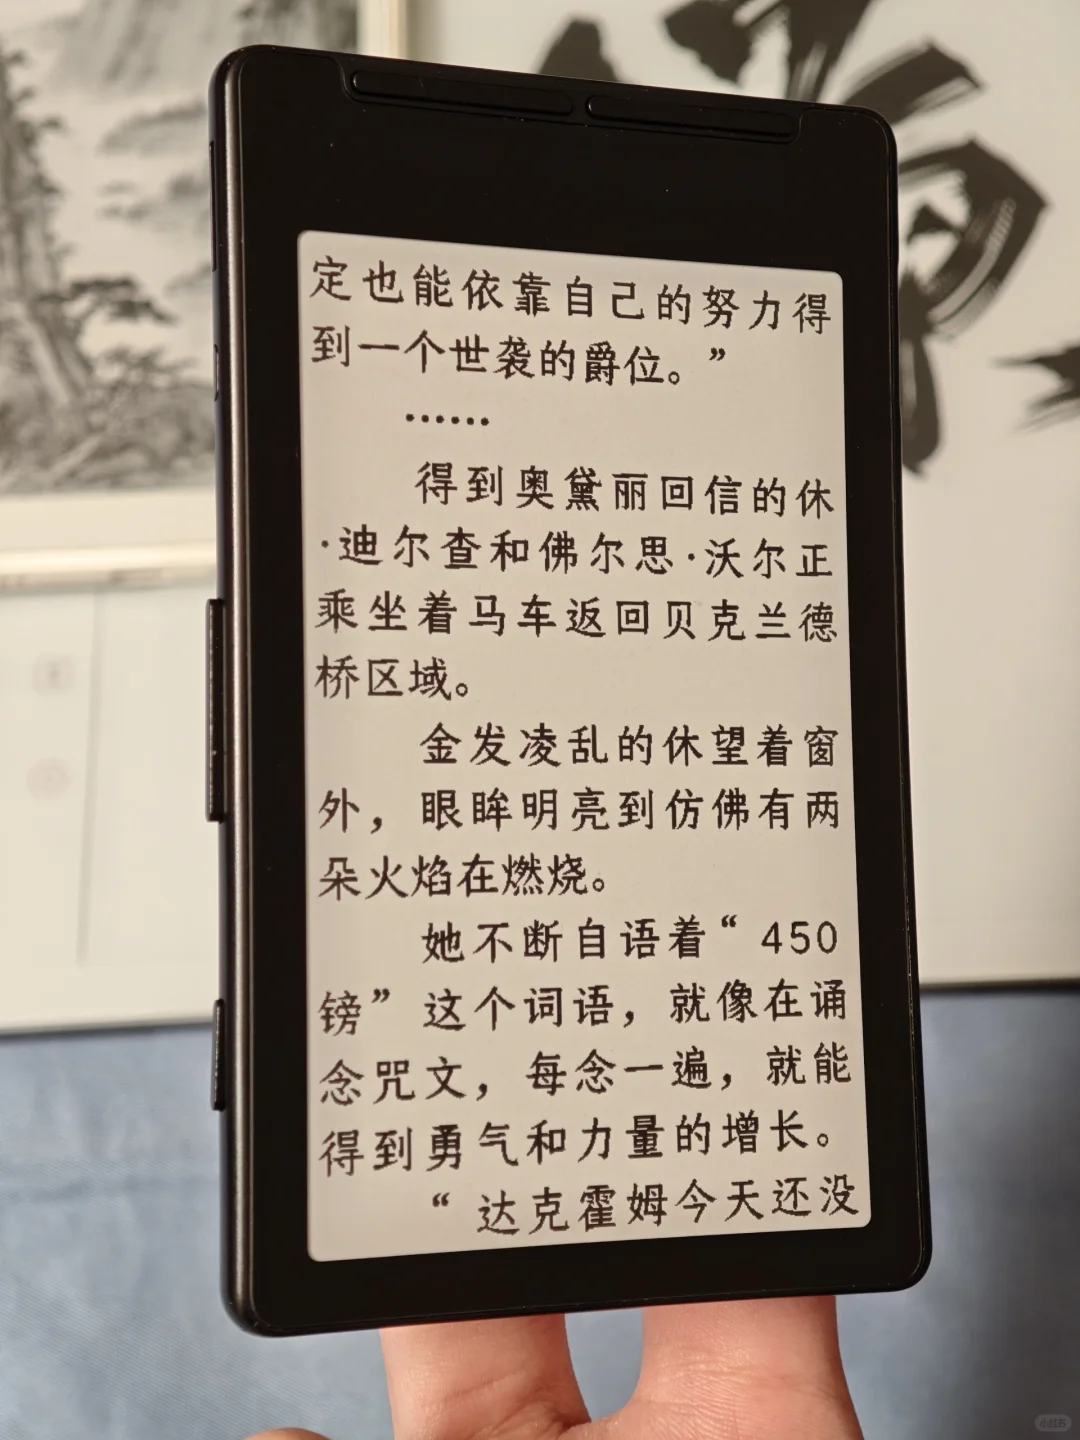 定也能依靠自己的努力得
到一个世袭的爵位。”
……
得到奥黛丽回信的休
·迪尔查和佛尔思·沃尔正
乘坐着马车返回贝克兰德
桥区域。
金发凌乱的休望着窗
外，眼眸明亮到仿佛有两
朵火焰在燃烧。
她不断自语着“450
镑”这个词语，就像在诵
念咒文，每念一遍，就能
得到勇气和力量的增长。
“达克霍姆今天还没
小红书